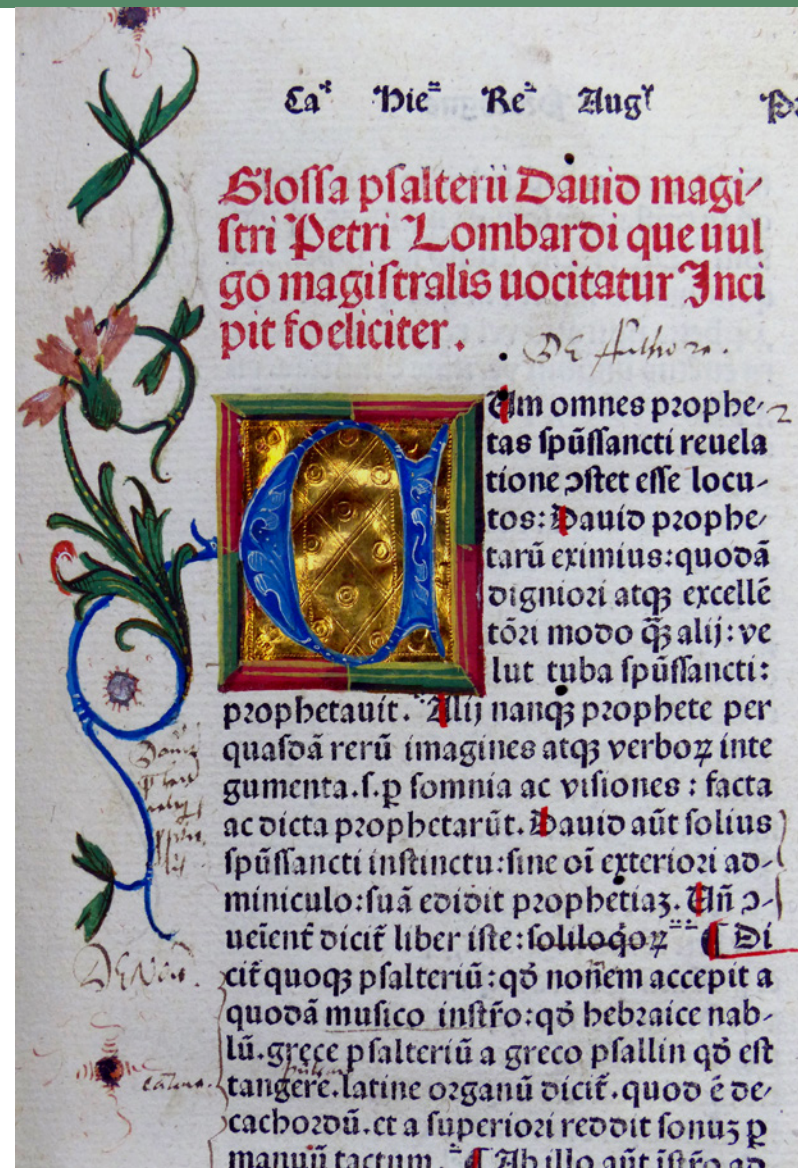 Caˢ Hieᷓ Reᷓ Augˢ
Glossa psalterii Dauid magi/
stri Petri Lombardi que uul
go magistralis uocitatur Inci
pit foeliciter.
DE Authore.
CUm omnes prophe-
tas spūssancti reuela
tione ↄstet esse locu-
tos: Dauid prophe/
tarū eximius: quodā
digniori atqꝫ excellē
tōri modo q̄ꝫ alij: ve
lut tuba spūssancti:
prophetauit. Alij nanqꝫ prophete per
quasdā rerū imagines atqꝫ verboꝝ inte
gumenta .s. ꝑ somnia ac visiones: facta
ac dicta prophetarūt. Dauid aūt solius
spūssancti instinctu: sine oī exteriori ad-
miniculo: suā edidit prophetiaꝫ. Uñ ↄ-
ueient̄ dicit̄ liber iste: soliloqoꝝ ¶ Di
cit̄ quoqꝫ psalteriū: qđ noñem accepit a
quodā musico instr̄o: qđ hebraice nab-
lū. grece psalteriū a greco psallin qđ est
tangere. latine organū dicit̄. quod ē de/
cachordū. et a superiori reddit sonuꝫ ꝑ
manuū tactum. ¶ Ab illo aūt istr̄o ad